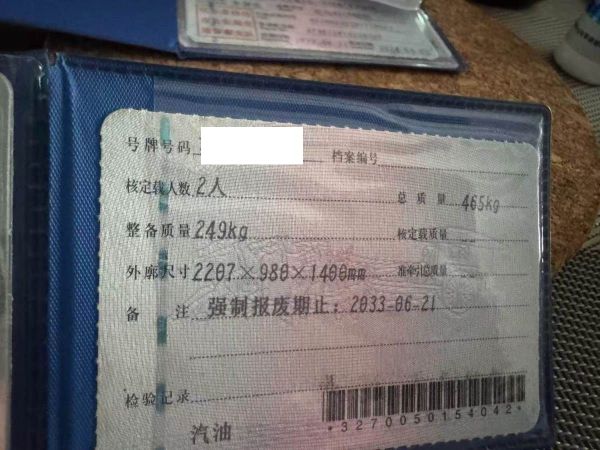 号牌号码 档案编号
核定载人数 2人 总质量 465kg
整备质量 249kg 核定载质量 --
外廓尺寸 2207×980×1400mm 准牵引总质量 --
备注 强制报废期止: 2033-06-21
检验记录
*3270050154042*
汽油